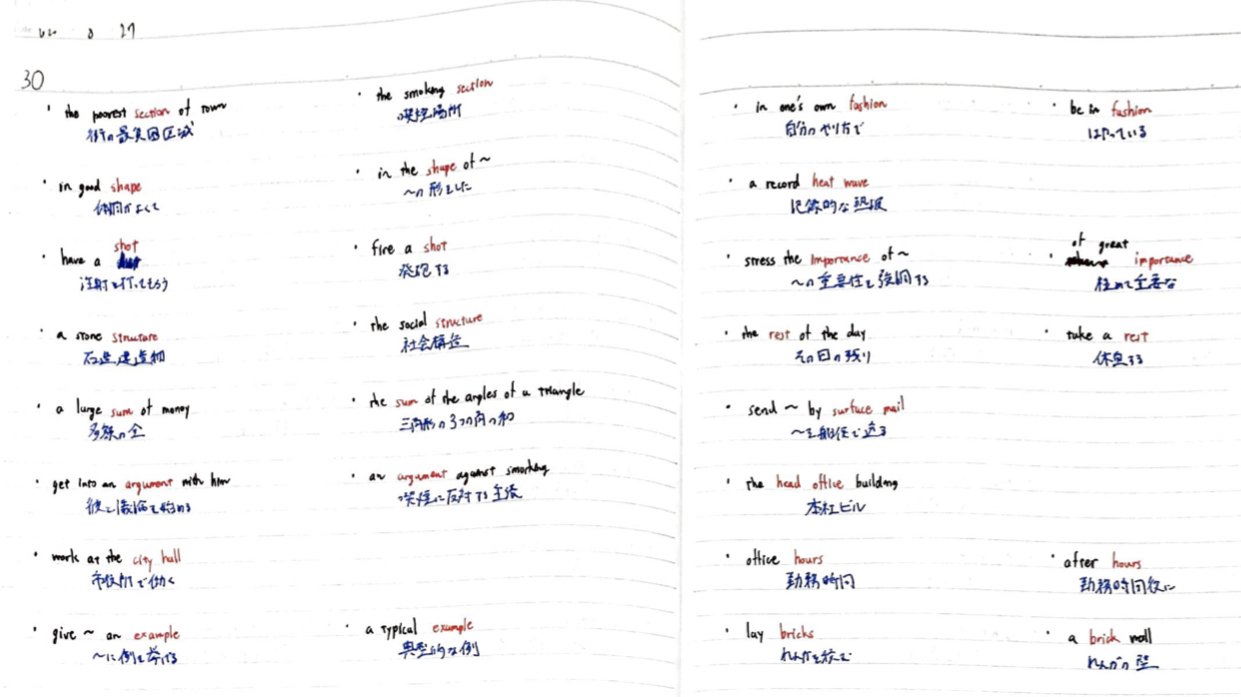 8 27
30
・ the poorest section of town
街の最貧困区域
・ the smoking section
喫煙場所
・ in good shape
体調がよくて
・ in the shape of ～
～の形をした
・ have a shot
注射を打ってもらう
・ fire a shot
発砲する
・ a stone structure
石造建造物
・ the social structure
社会構造
・ a large sum of money
多額の金
・ the sum of the angles of a triangle
三角形の3つの角の和
・ get into an argument with him
彼と議論を始める
・ an argument against smorking
喫煙に反対する主張
・ work at the city hall
市役所で働く
・ give ～ an example
～に例を挙げる
・ a typical example
典型的な例
・ in one's own fashion
自分のやり方で
・ be in fashion
はやっている
・ a record heat wave
記録的な熱波
・ stress the importance of ～
～の重要性を強調する
・ of great importance
極めて重要な
・ the rest of the day
その日の残り
・ take a rest
休息する
・ send ～ by surface mail
～を船便で送る
・ the head office building
本社ビル
・ office hours
勤務時間
・ after hours
勤務時間後に
・ lay bricks
れんがを積む
・ a brick wall
れんがの壁